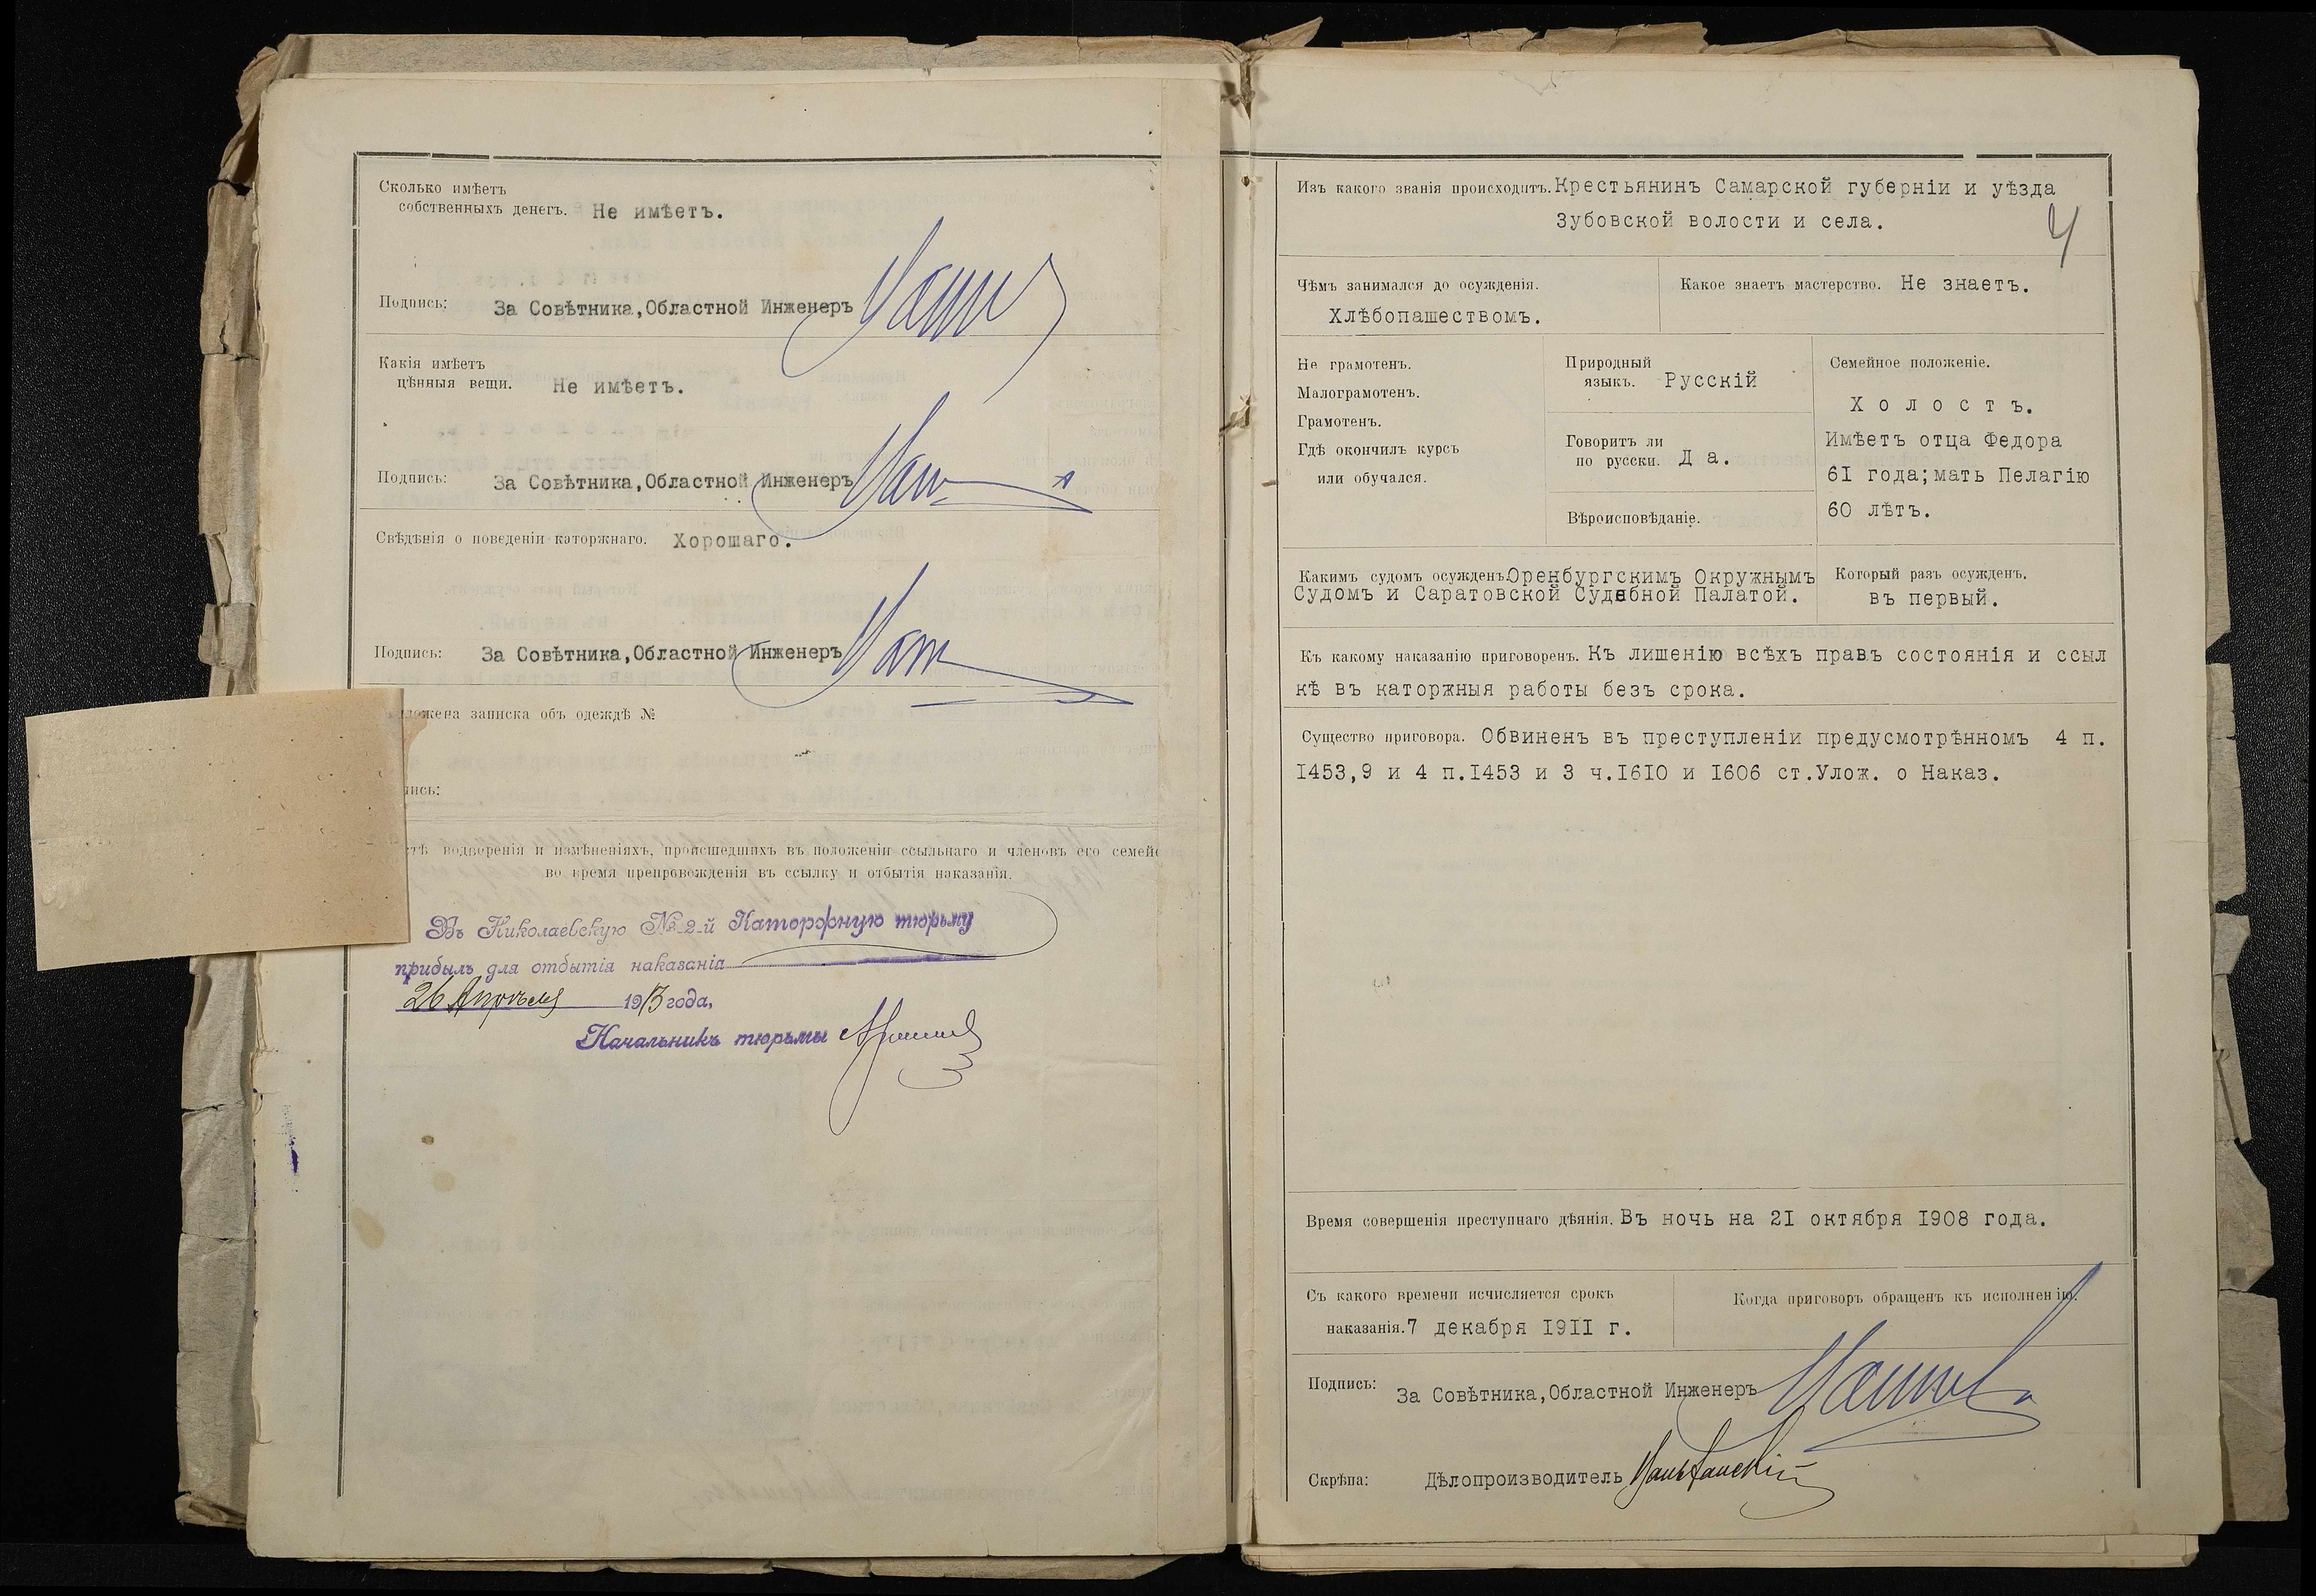 Сколько имѣетъ
собственныхъ денегъ. Не имѣетъ.
Подпись: За Совѣтника,Областной Инженеръ
Какія имѣетъ
цѣнныя вещи. Не имѣетъ.
Подпись: За Совѣтника,Областной Инженеръ
Свѣдѣнія о поведеніи каторжнаго. Хорошаго.
Подпись: За Совѣтника,Областной Инженеръ
записка объ одеждѣ №
водворенія и измѣненіяхъ, происшедшихъ въ положеніи ссыльнаго и членовъ его
во время препровожденія въ ссылку и отбытія наказанія.
Въ Николаевскую № 2-й Каторжную тюрьму
прибылъ для отбытія наказанія
26 Апрѣля 1913 года,
Начальникъ тюрьмы
4
Изъ какого званія происходитъ. Крестьянинъ Самарской губерніи и уѣзда
Зубовской волости и села.
Чѣмъ занимался до осужденія.
Хлѣбопашествомъ.
Какое знаетъ мастерство. Не знаетъ.
Не грамотенъ.
Малограмотенъ.
Грамотенъ.
Гдѣ окончилъ курсъ
или обучался.
Природный
языкъ. Русскій
Говоритъ ли
по русски. Да.
Вѣроисповѣданіе.
Семейное положеніе.
Холостъ.
Имѣетъ отца Федора
61 года;мать Пелагію
60 лѣтъ.
Какимъ судомъ осужденъ.Оренбургскимъ Окружнымъ
Судомъ и Саратовской Судебной Палатой.
Который разъ осужденъ.
въ первый.
Къ какому наказанію приговоренъ. Къ лишенію всѣхъ правъ состоянія и ссыл
кѣ въ каторжныя работы безъ срока.
Существо приговора. Обвиненъ въ преступленіи предусмотрѣнномъ 4 п.
1453,9 и 4 п.1453 и 3 ч.1610 и 1606 ст.Улож. о Наказ.
Время совершенія преступнаго дѣянія. Въ ночь на 21 октября 1908 года.
Съ какого времени исчисляется срокъ
наказанія.7 декабря 1911 г.
Когда приговоръ обращенъ къ исполненію.
Подпись: За Совѣтника,Областной Инженеръ
Скрѣпа: Дѣлопроизводитель